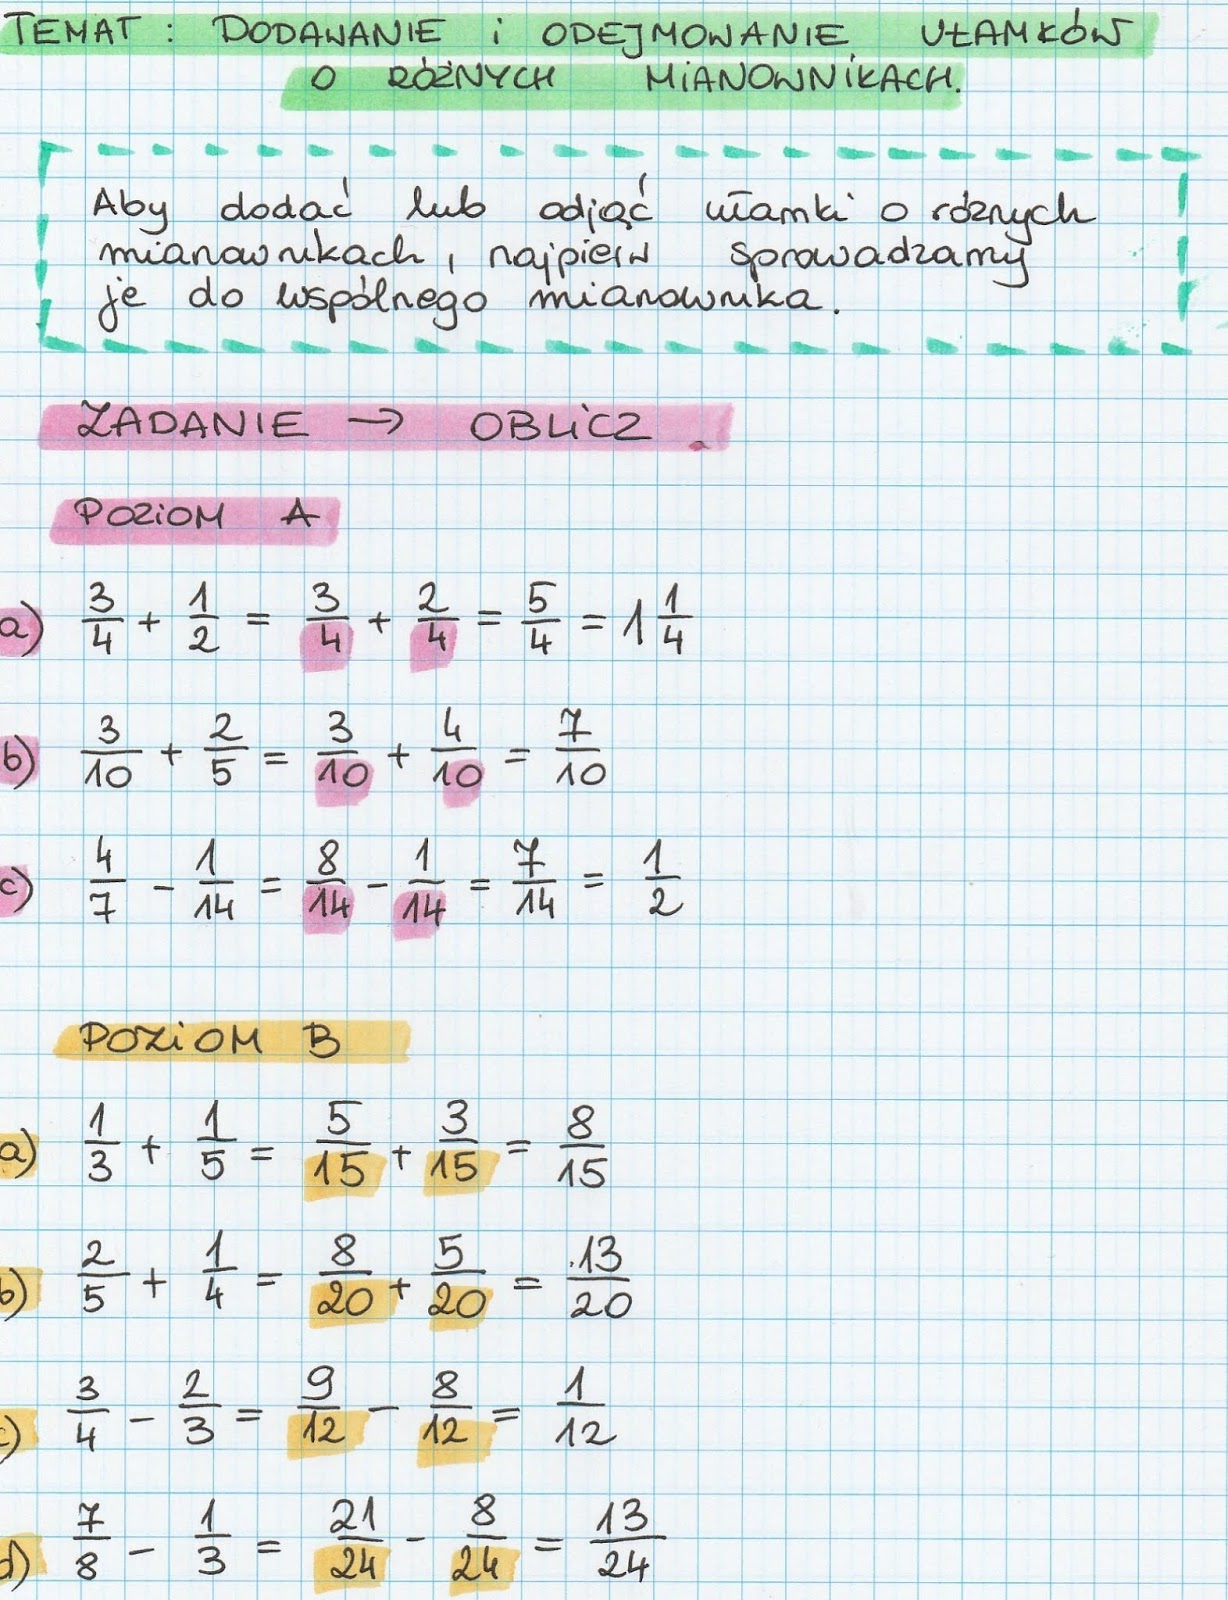 TEMAT : DODAWANIE i ODEJMOWANIE UŁAMKÓW
O RÓŻNYCH MIANOWNIKACH.
Aby dodać lub odjąć ułamki o różnych
mianownikach, najpierw sprowadzamy
je do wspólnego mianownika.
ZADANIE → OBLICZ.
POZIOM A
a) 3/4 + 1/2 = 3/4 + 2/4 = 5/4 = 1 1/4
b) 3/10 + 2/5 = 3/10 + 4/10 = 7/10
c) 4/7 - 1/14 = 8/14 - 1/14 = 7/14 = 1/2
POZIOM B
a) 1/3 + 1/5 = 5/15 + 3/15 = 8/15
b) 2/5 + 1/4 = 8/20 + 5/20 = 13/20
c) 3/4 - 2/3 = 9/12 - 8/12 = 1/12
d) 7/8 - 1/3 = 21/24 - 8/24 = 13/24